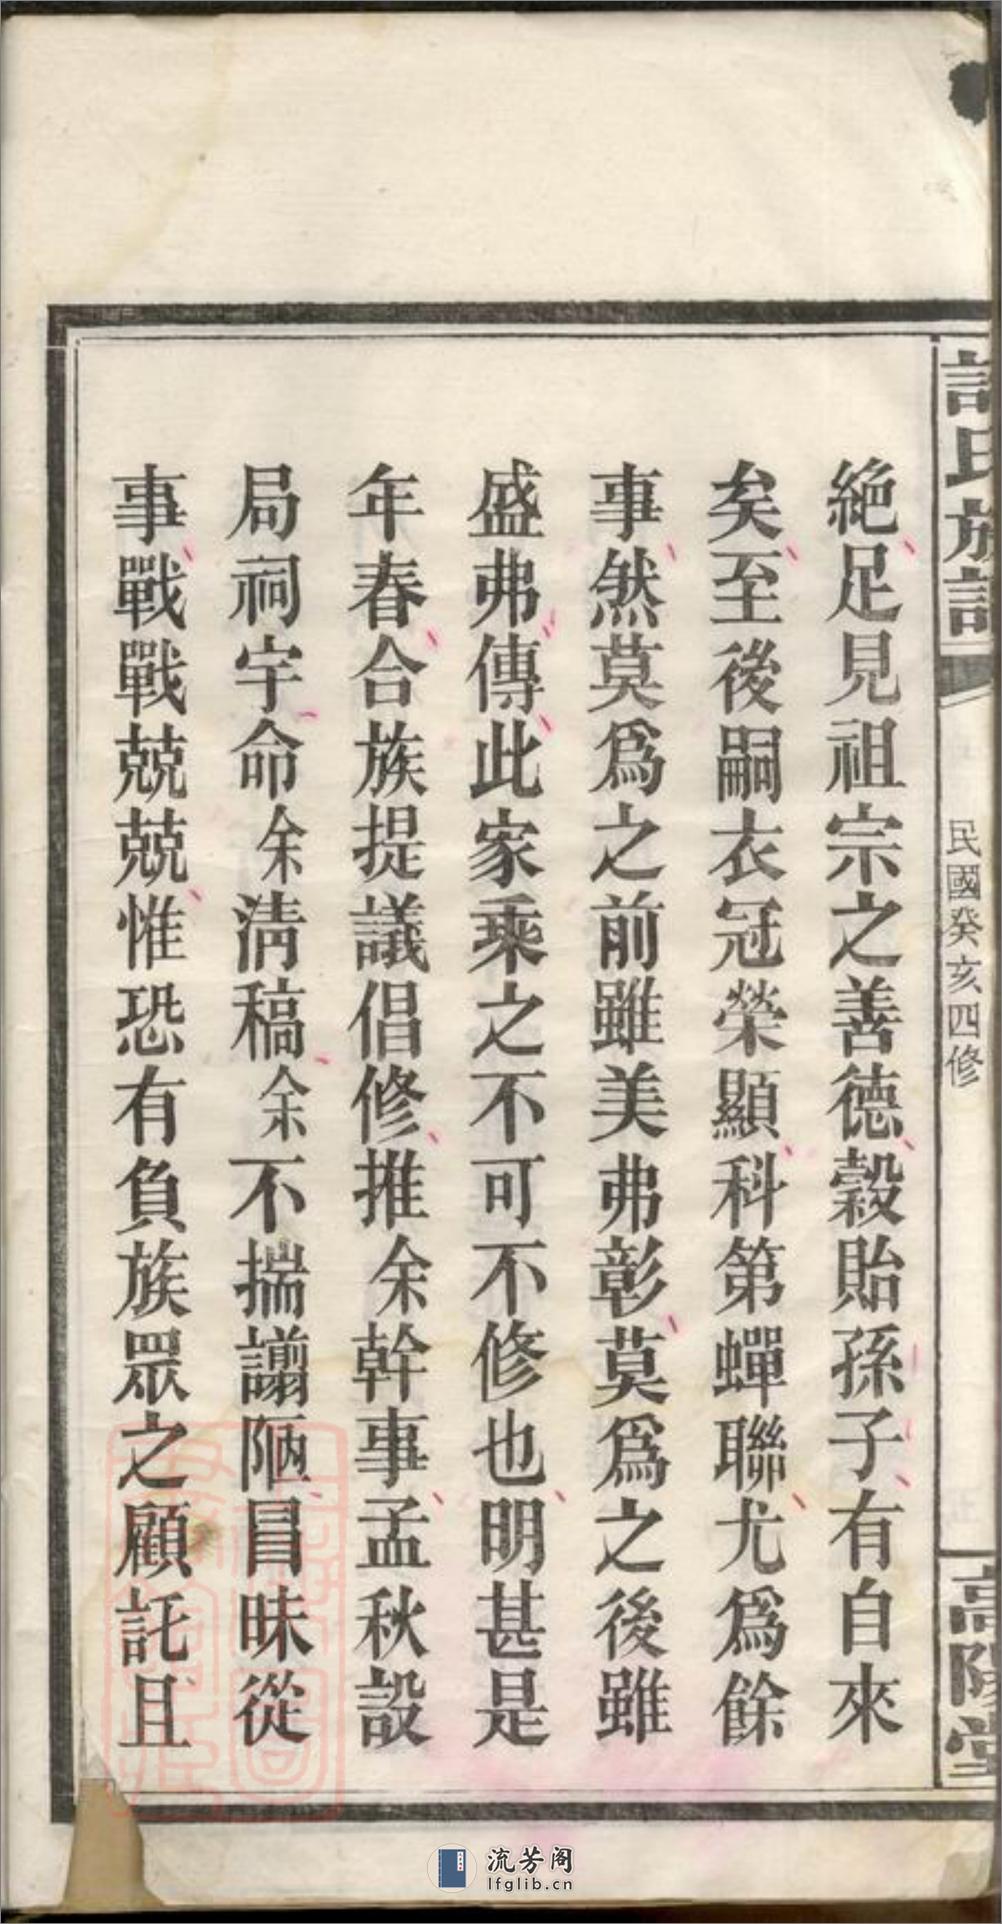 許氏族譜
民國癸亥四修
高陽堂
絕足見祖宗之善德穀貽孫子有自來
矣至後嗣衣冠榮顯科第蟬聯尤爲餘
事然莫爲之前雖美弗彰莫爲之後雖
盛弗傳此家乘之不可不修也明甚是
年春合族提議倡修推余幹事孟秋設
局祠宇命余清稿余不揣譾陋冒昧從
事戰戰兢兢惟恐有負族眾之顧託且
流芳阁
lfglib.cn